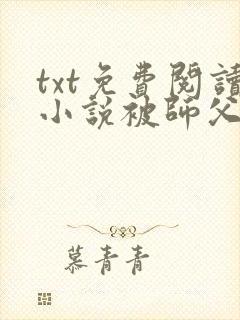 txt免費閱讀
小說被師父
慕青青